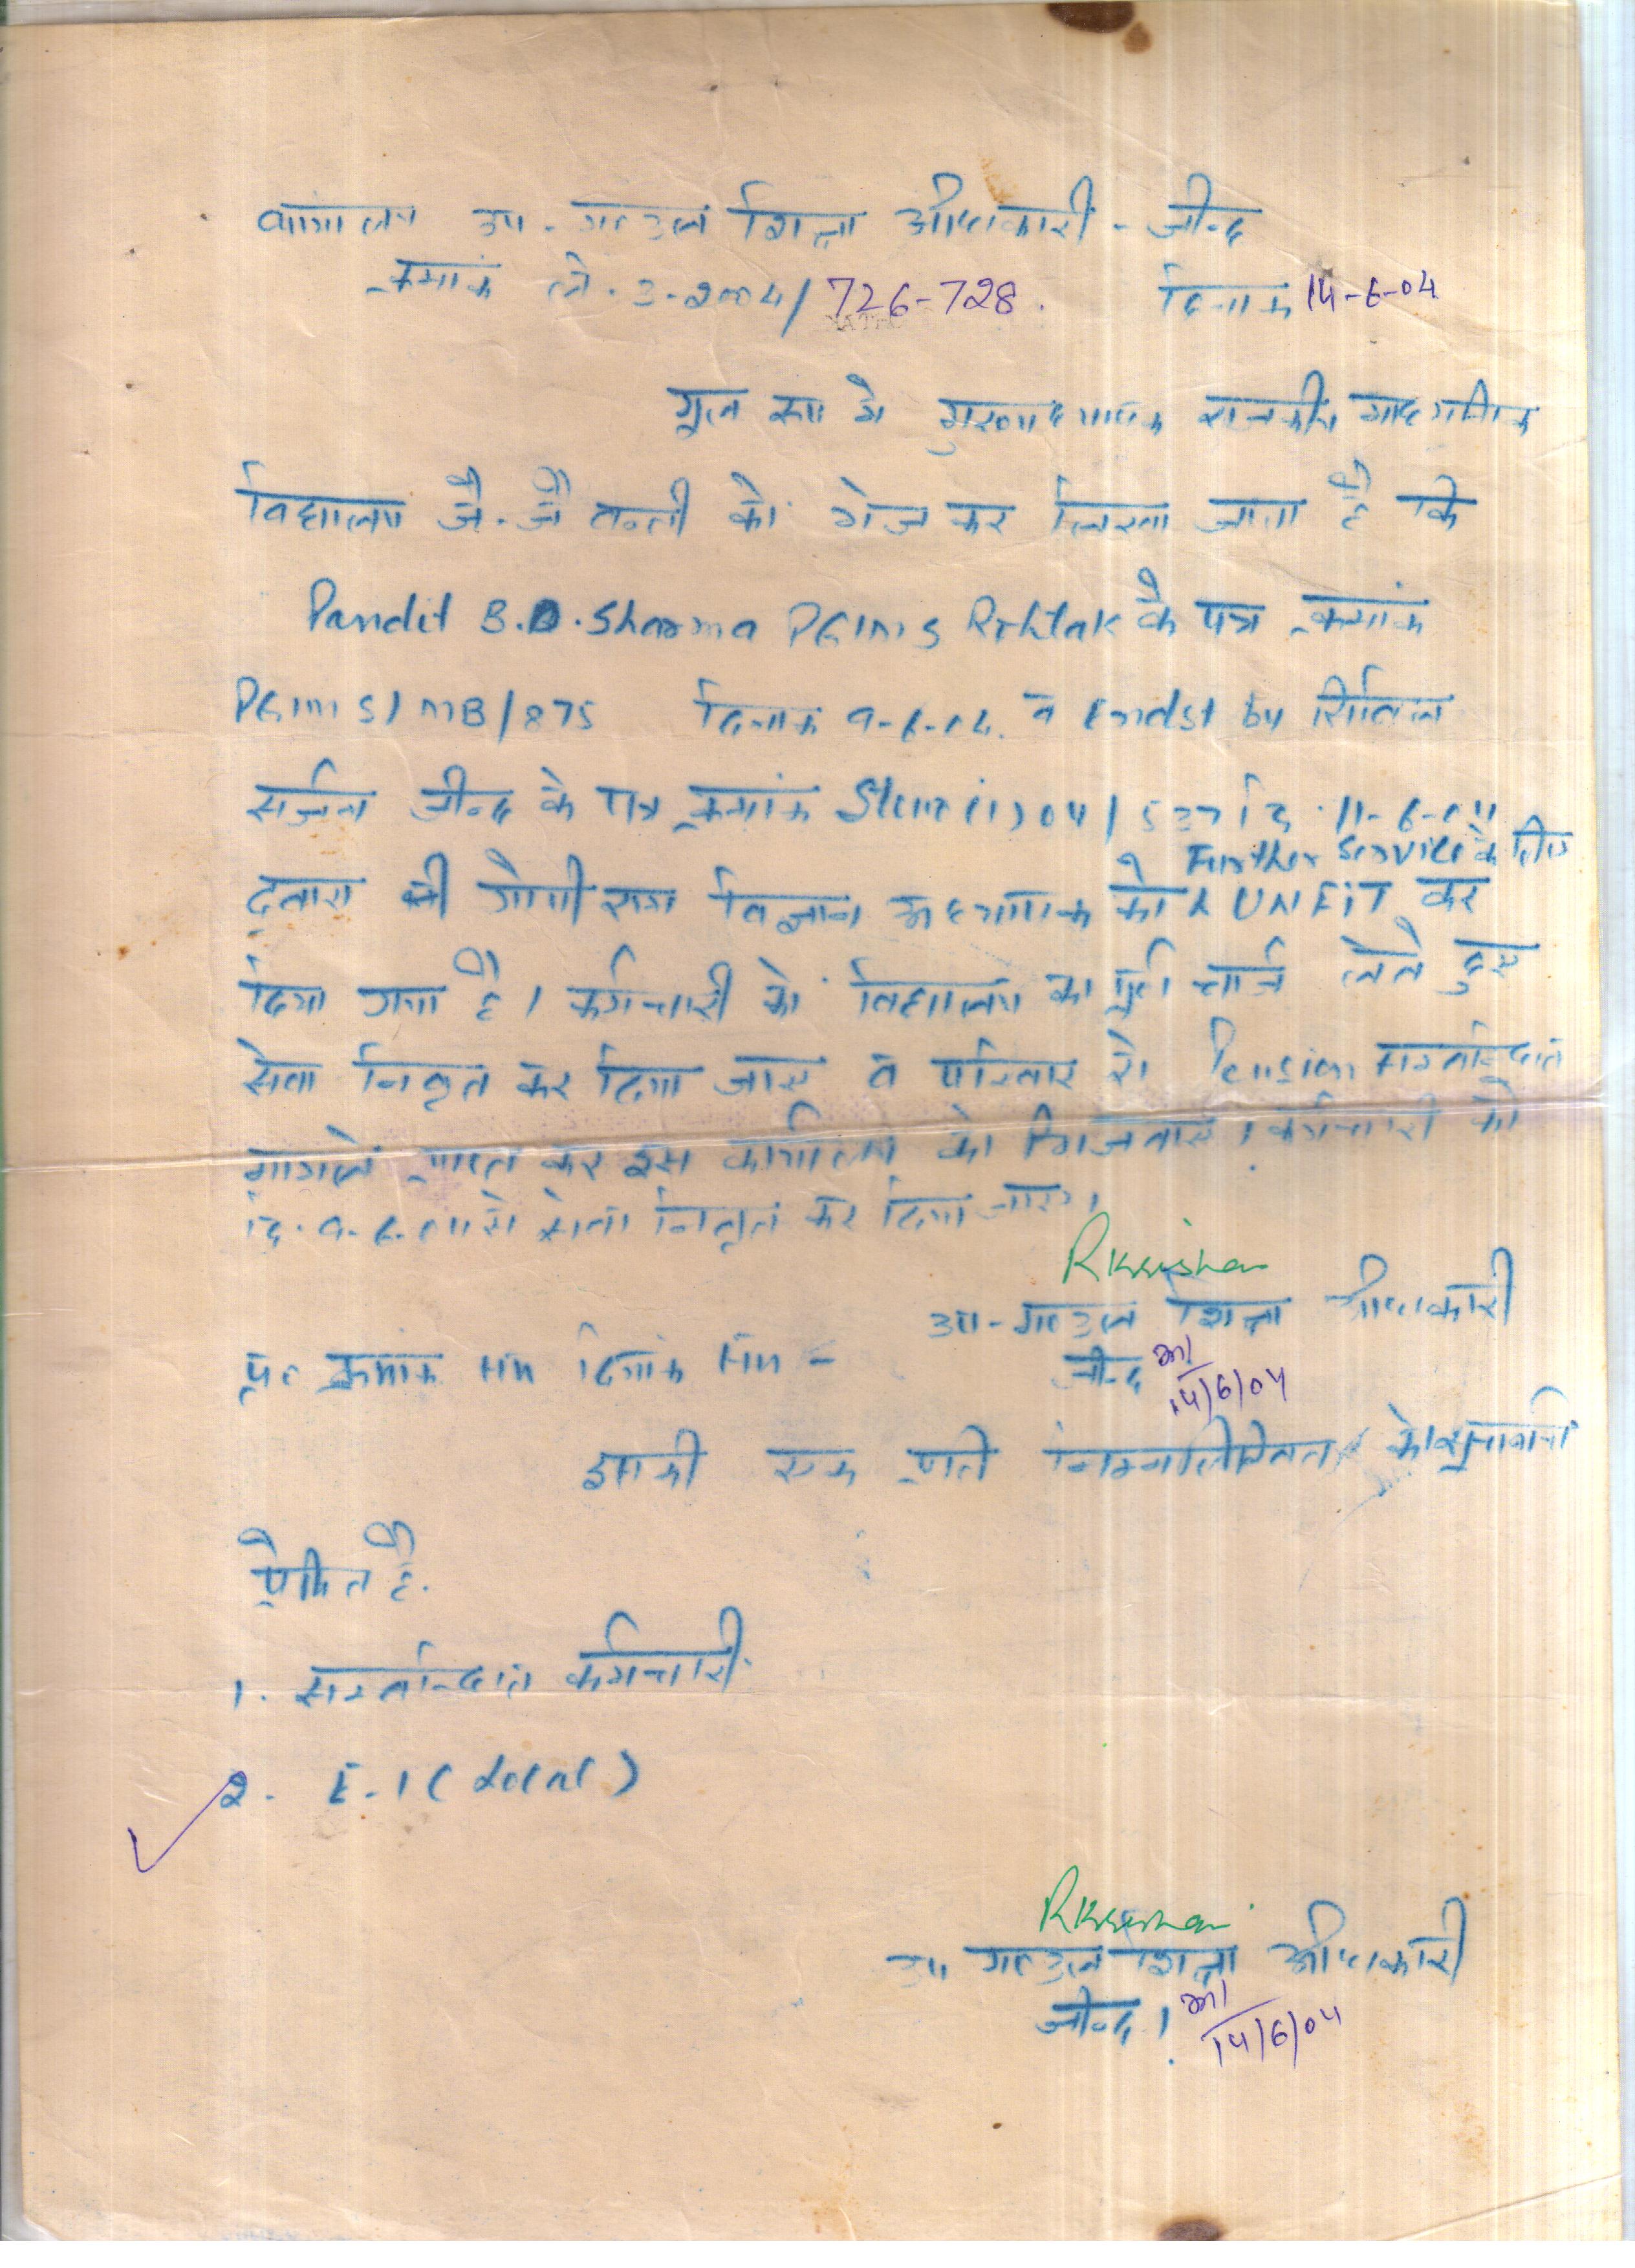 कार्यालय उप-मण्डल शिक्षा अधिकारी - जीन्द
क्रमांक ले. 3-2004/726-728. दिनांक 14-6-04
मूल रूप में मुख्याध्यापक राजकीय माध्यमिक
विद्यालय जै. जै बन्ती को भेज कर लिखा जाता है कि
Pandit B.D. Sharma PGIMS Rohtak के पत्र क्रमांक
PGIMS/MB/875 दिनांक 9-6-04. व Endst by सिविल
सर्जन जीन्द के पत्र क्रमांक 04/ दि. 11-6-04
Further Service के लिए
द्वारा श्री योगी राज विज्ञान अध्यापक को UNFIT कर
दिया गया है। कर्मचारी को विद्यालय का पूर्ण चार्ज लेते हुए
सेवा निवृत कर दिया जाए व परिवार से Pension सम्बन्धित
मामले प्राप्त कर इस कार्यालय को भिजवाए। कर्मचारी को
दि. 9-6-04 से सेवा निवृत कर दिया जाए।
RKrishan
उप-मण्डल शिक्षा अधिकारी
जीन्द
14/6/04
पृ० क्रमांक सम दिनांक सम -
इसकी एक प्रति निम्नलिखित को सूचनार्थ
प्रेषित है.
1. सम्बन्धित कर्मचारी.
2. E-1 (Local)
RKrishan
उप मण्डल शिक्षा अधिकारी
जीन्द।
14/6/04